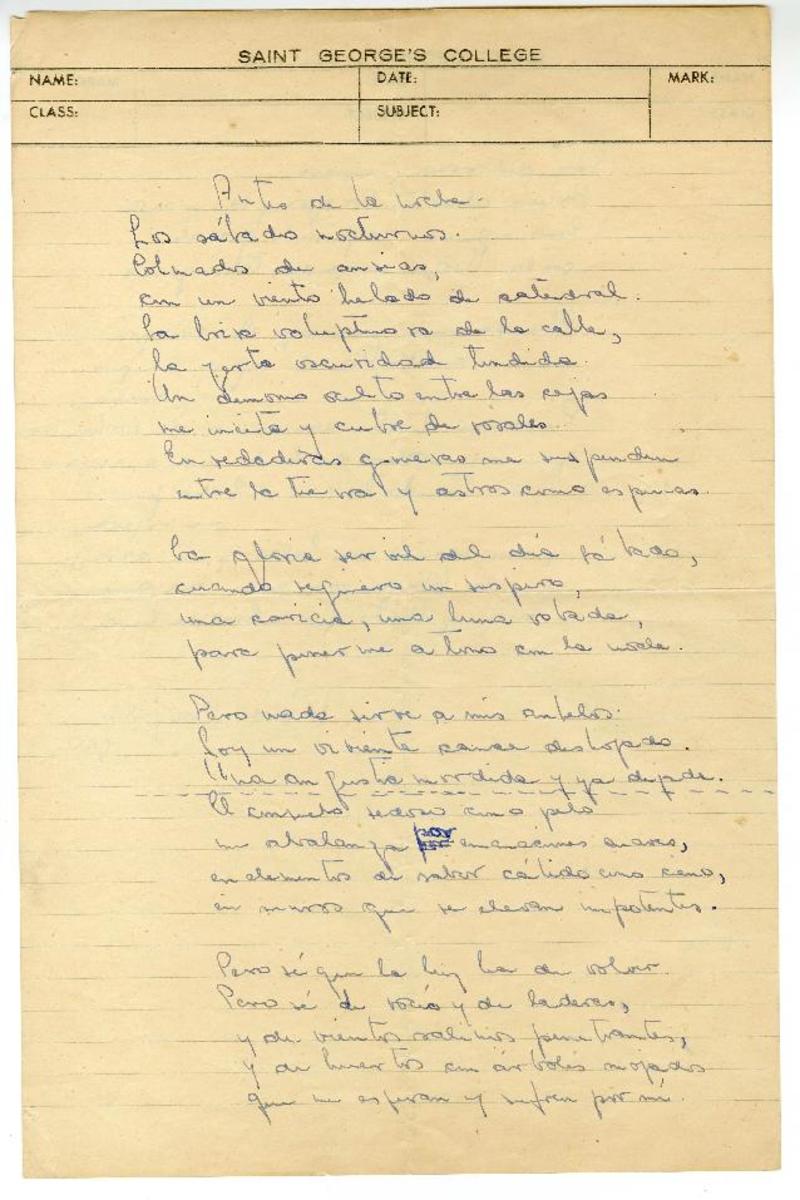 SAINT GEORGE'S COLLEGE
NAME:
DATE:
MARK:
CLASS:
SUBJECT:
Antes de la noche.
Los sábados nocturnos.
Colmados de ansias,
con un viento helado de catedral.
La brisa voluptuosa de la calle,
la yerta oscuridad tendida.
Un demonio oculto entre las cejas
me incita y cubre de rosales.
Enredaderas me suspenden
entre la tierra y astros como espinas.
La gloria del día sábado,
cuando requiero un suspiro,
una caricia, una luna robada,
para ponerme a tono con la noche.
Pero nada sirve a mis anhelos.
Soy un viviente cauce deshojado.
Una angustia mordida y ya dejada.
El consuelo sedoso como pelo
se abalanza por emanaciones suaves,
en elementos de sabor cálido como ceno,
en muros que se elevan impotentes.
Pero sé que la luz ha de volver.
Pero sé de rocío y de laderas,
y de vientos salinos penetrantes,
y de huertos con árboles mojados
que me esperan y sufren por mí.